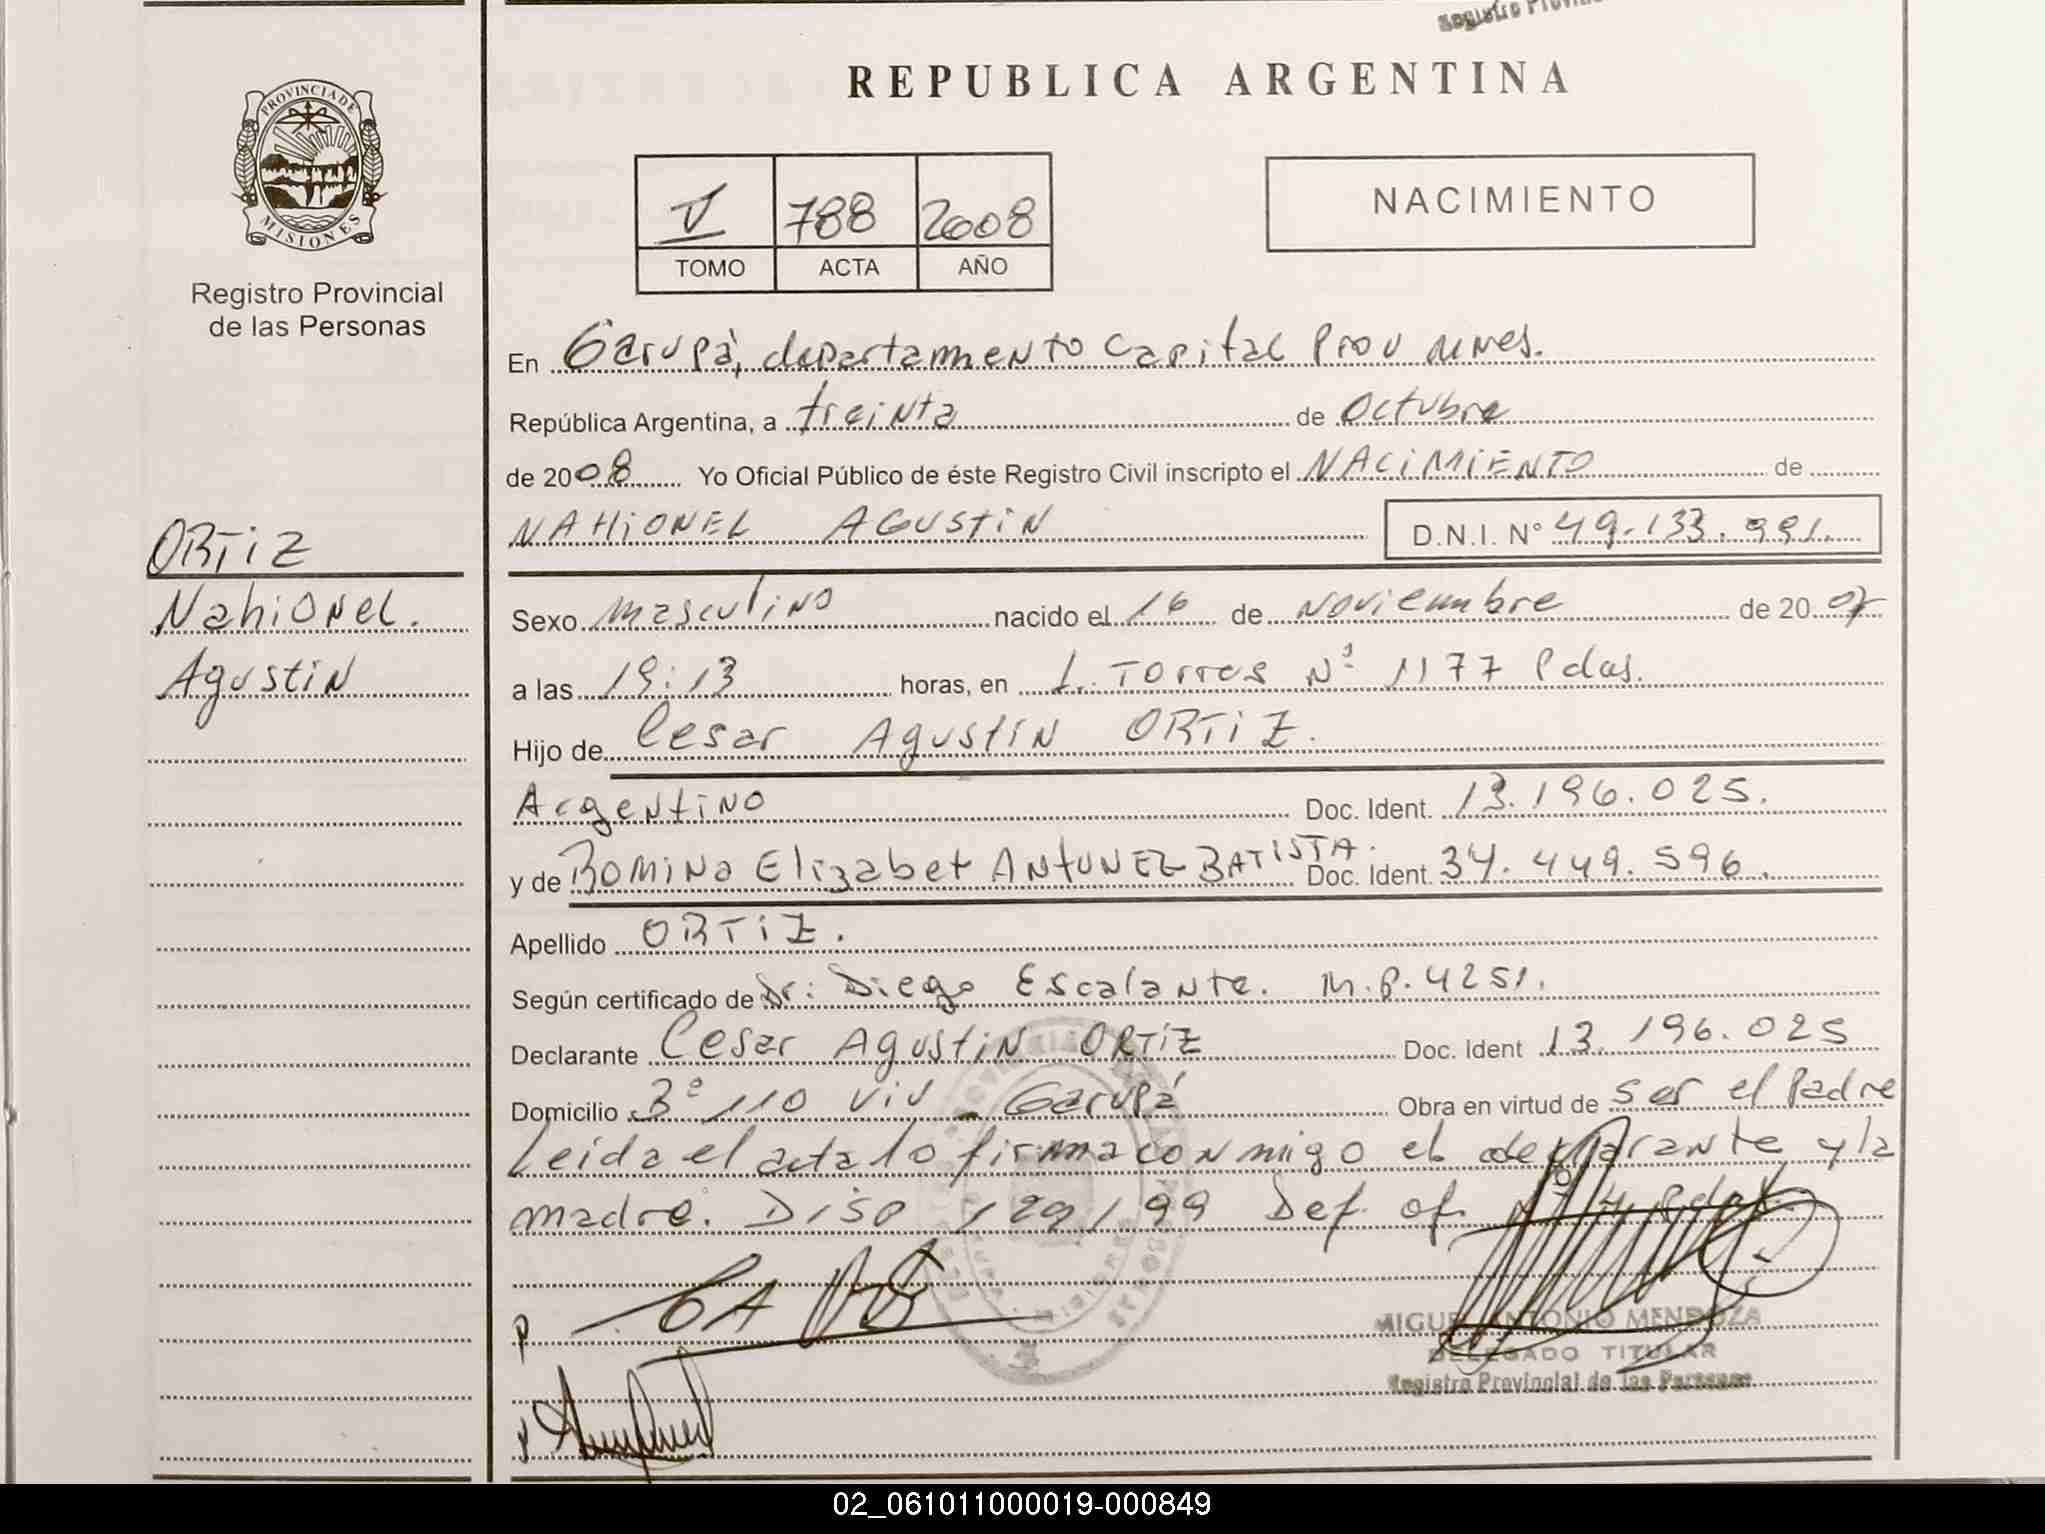 Registro Provin
REPUBLICA ARGENTINA
PROVINCIA DE
MISIONES
Registro Provincial
de las Personas
V 788 2008
TOMO ACTA AÑO
NACIMIENTO
En Garupá, departamento Capital Prov Mnes.
República Argentina, a treinta de Octubre
de 2008 Yo Oficial Público de éste Registro Civil inscripto el NACIMIENTO de
NAHIONEL AGUSTIN D.N.I. Nº 49.133.991.
ORTIZ
Nahionel.
Agustin
Sexo masculino nacido el 16 de noviembre de 2007
a las 19:13 horas, en L. Torres Nº 1177 Pdas.
Hijo de Cesar Agustin ORTIZ.
Argentino Doc. Ident. 13.196.025.
y de Romina Elizabet ANTUNEZ BATISTA. Doc. Ident. 34.449.596.
Apellido ORTIZ.
Según certificado de Dr: Diego Escalante. M.P. 4251.
Declarante Cesar Agustin ORTIZ Doc. Ident 13.196.025
Domicilio 3º 110 Viv - Garupá Obra en virtud de ser el Padre
Leida el acta lo firma conmigo el declarante y la
madre. Disp 129/99 Def. of. Nº 4 Pdas.
MIGUEL ANTONIO MENDOZA
DELEGADO TITULAR
Registro Provincial de las Personas
02_061011000019-000849